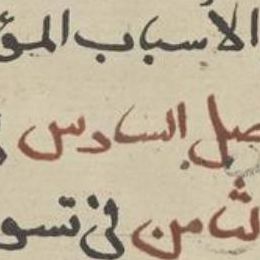 الاسباب المؤ
صل السادس
لثامن في تسو